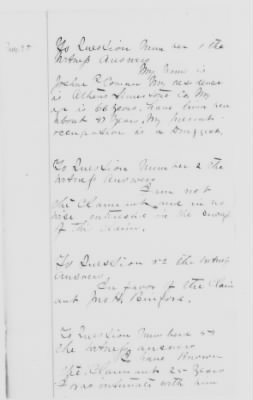 To Question Number 1 the
Witness Answers
My name is
Joshua C Coman My residence
is Athens Limestone Co. My
age is 66 years. Have lived here
about 47 years, My present
occupation is a Druggist,
To Question Number 2 the
Witness Answers
I am not
the Claimant and in no
wise interested in the
of the Claim.
To Question the Witness
Answers,
In favor of the Claim
ant Jno H. Binford.
To Question Number the
the Witness answers
I have Known
the Claimant 25 years
I was intimate with him